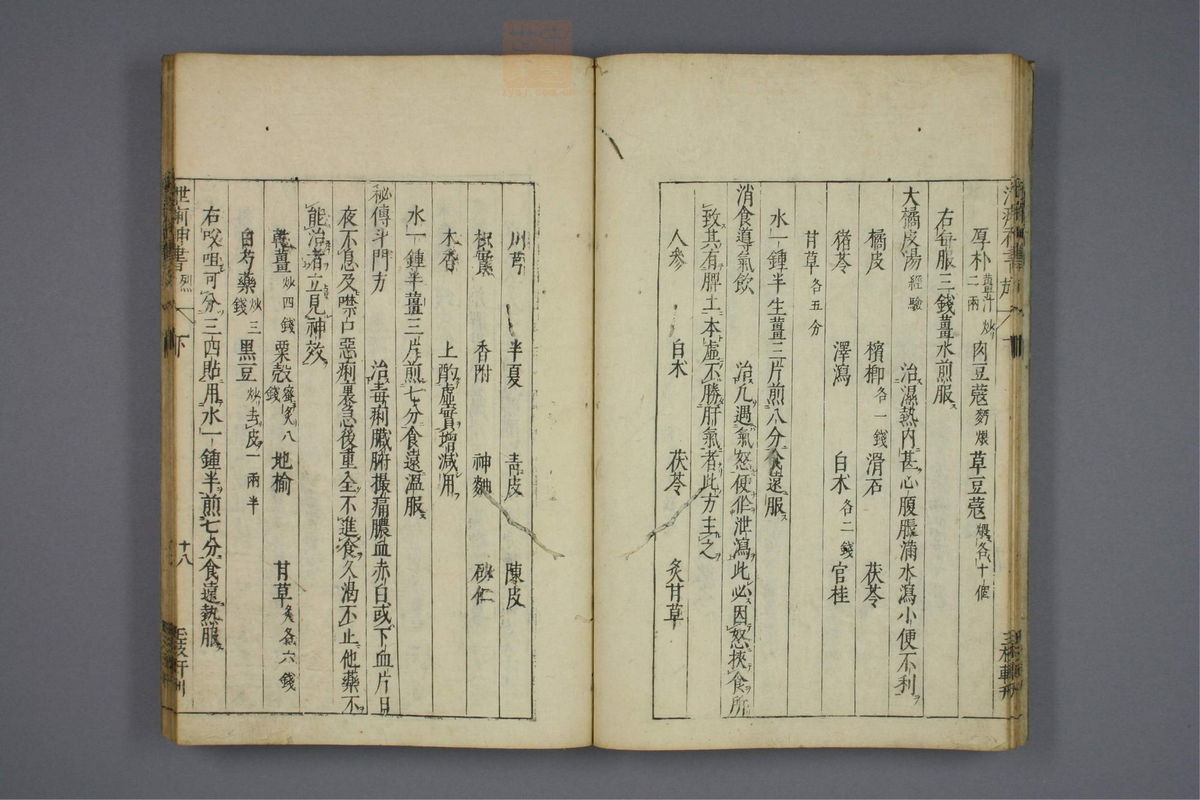 厚朴薑汁炒二兩 肉豆蔻麪煨 草豆蔻煨各十個
右每服三錢薑水煎服
大橘皮湯經驗 治濕熱內甚心腹脹滿水瀉小便不利
橘皮 檳榔各一錢 滑石 茯苓
猪苓 澤瀉 白朮各二錢 官桂
甘草各五分
水一鍾半生薑三片煎八分食遠服
消食導氣飲 治凡遇氣怒便作泄瀉此必因怒挾食所
致其有脾土本虛不勝肝氣者此方主之
人參 白朮 茯苓 炙甘草
川芎 半夏 青皮 陳皮
枳實 香附 神麯 砂仁
木香 上酌虛實增減用
水一鍾半薑三片煎七分食遠溫服
秘傳斗門方 治毒痢臟腑撮痛膿血赤白或下血片日
夜不息及噤口惡痢裏急後重全不進食久渴不止他藥不
能治者立見神效
乾薑炒四錢 粟殼蜜炙八錢 地榆 甘草炙各六錢
白芍藥炒三錢 黑豆炒去皮一兩半
右㕮咀可分三四貼用水一鍾半煎七分食遠熱服
十八